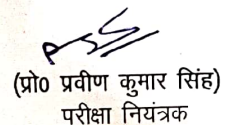 (प्रो० प्रवीण कुमार सिंह)
परीक्षा नियंत्रक